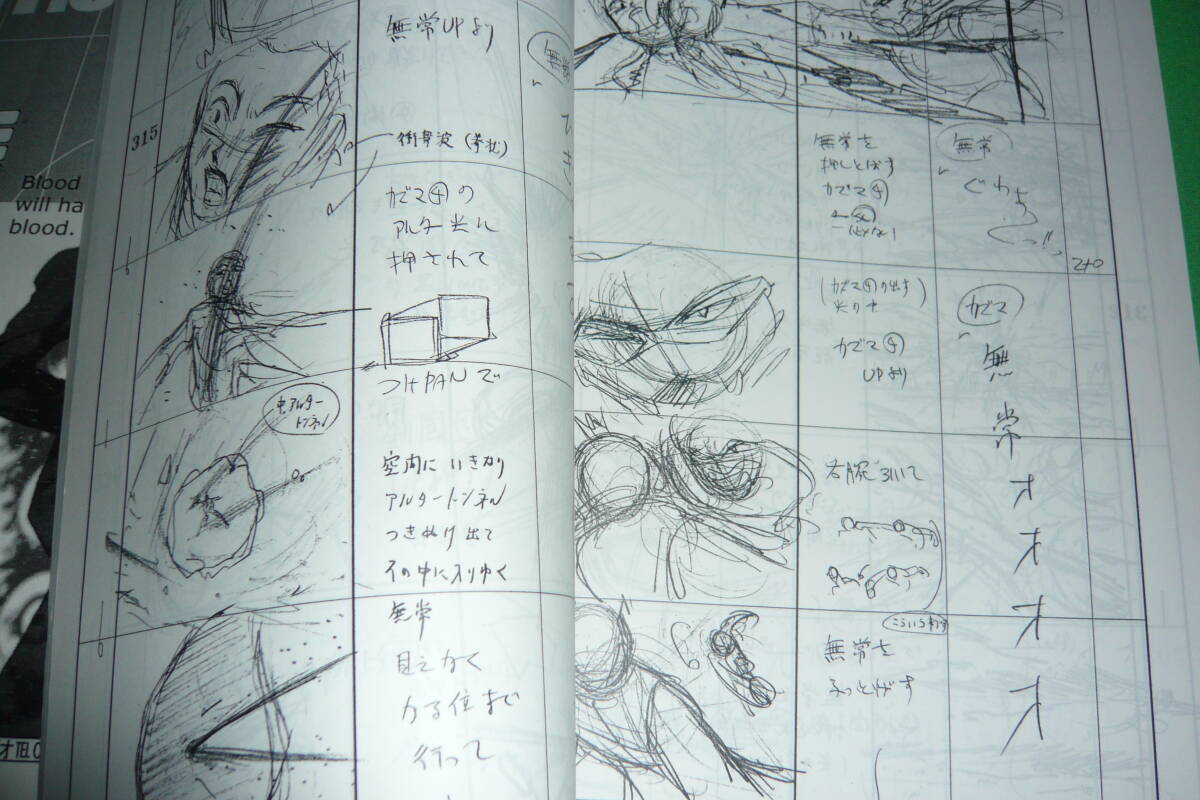 Blood
will ha
blood.
315
無常UPより
衝撃波(帯状)
カズマ④の
アルター光に
押されて
つけPANで
中、アルター
トンネル
空間にいきなり
アルタートンネル
つきぬけ出て
その中に入りゆく
無常
見えなく
なる位まで
行って
無常を
押しとばす
カズマ④
無常
ぐわあ
くっ!!
2+0
(カズマ④の出す
光の中)
カズマ④
UPより
カズマ
無
常
オ
オ
オ
オ
右腕引いて
こういう事です
無常を
ふっとばす